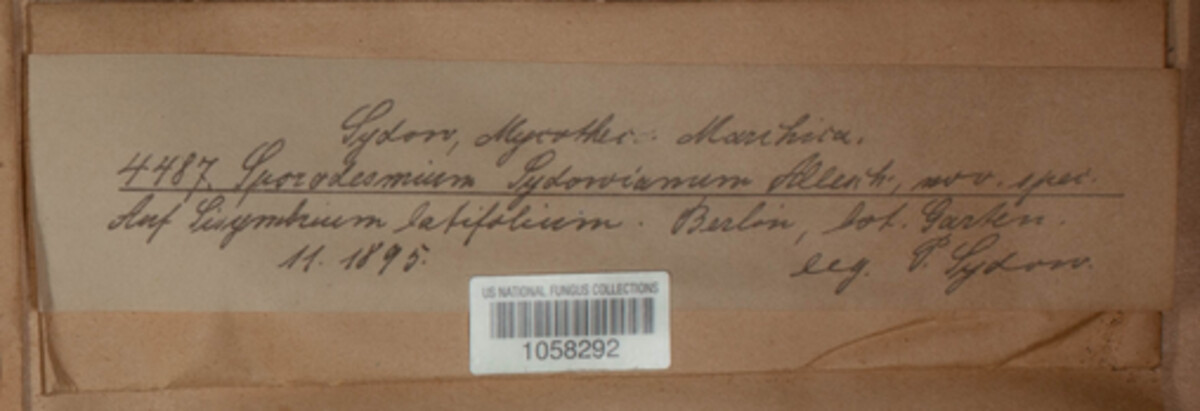 Sydow, Mycothec. Marchica.
4487. Sporodesmium Sydowianum Allesch., nov. spec.
Auf Sisymbrium latifolium. Berlin, bot. Garten.
11. 1895.
leg. P. Sydow.
US NATIONAL FUNGUS COLLECTIONS
1058292